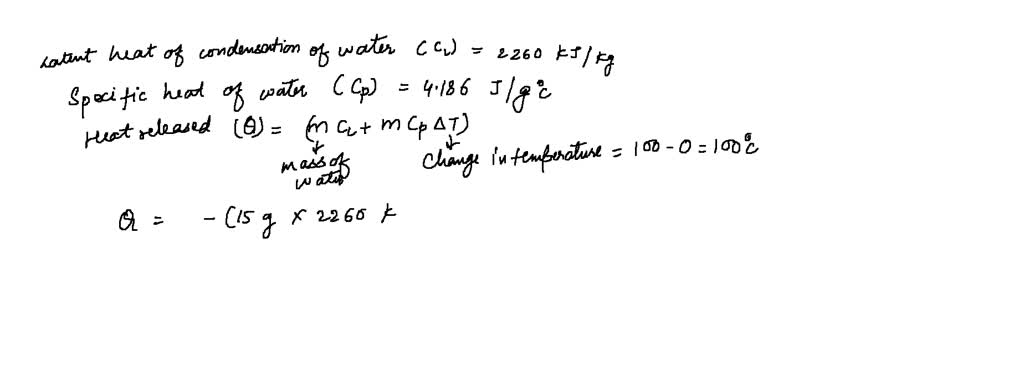 Latent heat of condensation of water (CL) = 2260 kJ/kg
Specific heat of water (Cp) = 4.186 J/g°C
Heat released (Q) = (m CL + m Cp ΔT)
↓ ↓
mass of water Change in temperature = 100 - 0 = 100°C
Q = - (15 g x 2260 k